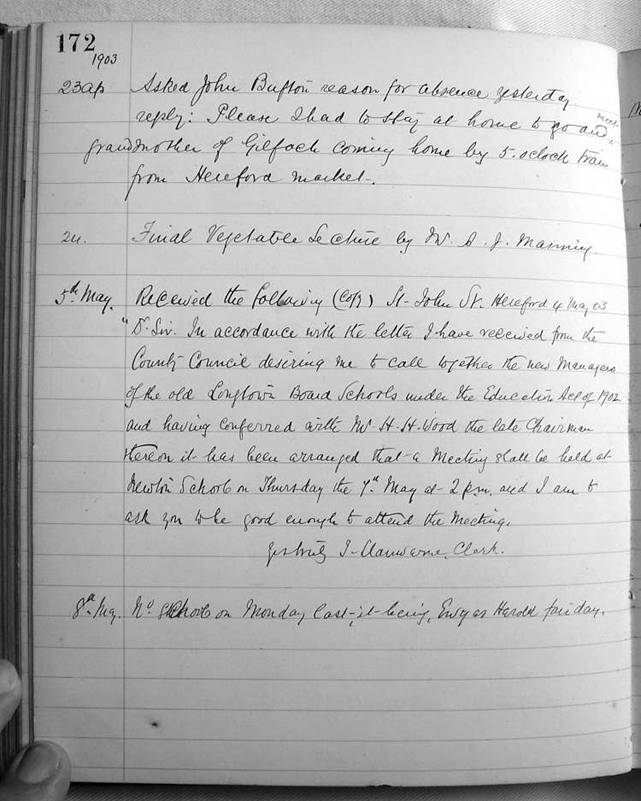 172
1903
23 ap Asked John Bufton reason for absence yesterday
reply: Please I had to stay at home to go and meet
grandmother of Gilfach coming home by 5. oclock train
from Hereford market.
24. Final Vegetable Lecture by Mr. A. J. Manning
5th May. Received the following (Copy) St. John St. Hereford 4 May 03
"Dr. Sir. In accordance with the letter I have received from the
County Council desiring me to call together the new Managers
of the old Longtown Board Schools under the Education Act of 1902
and having conferred with Mr. H. H. Wood the late Chairman
thereon it has been arranged that a Meeting shall be held at
Newton School on Thursday the 7th May at 2 pm. and I am to
ask you to be good enough to attend the Meeting.
Yrs truly T. Llanwarne, Clerk.
8th May. No School on Monday last, it being, Ewyas Harold fair day.